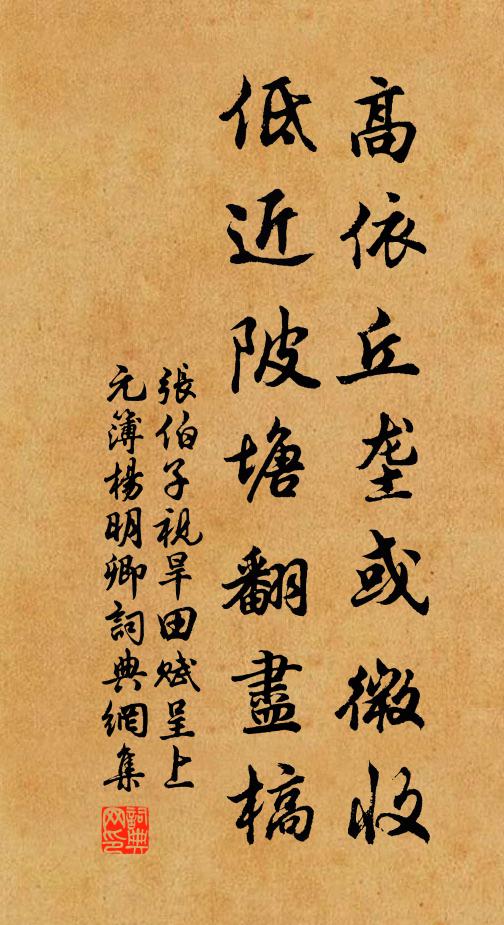 高依丘垄或微收
低近陂塘翻盡槁
張伯子視旱田賦呈上
元簿楊明卿詞典網集
詞典网印